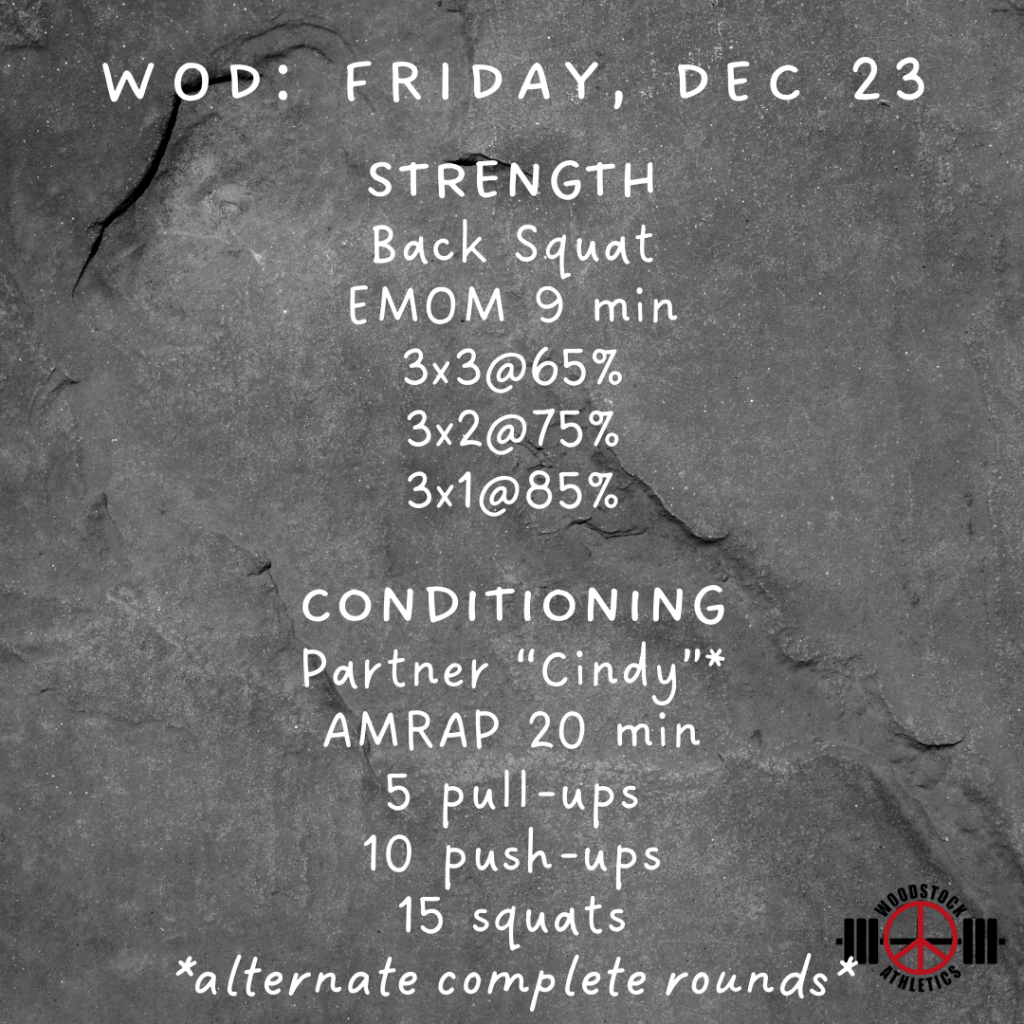 WOD: FRIDAY, DEC 23
STRENGTH
Back Squat
EMOM 9 min
3x3@65%
3x2@75%
3x1@85%
CONDITIONING
Partner “Cindy”*
AMRAP 20 min
5 pull-ups
10 push-ups
15 squats
*alternate complete rounds*
WOODSTOCK
ATHLETICS